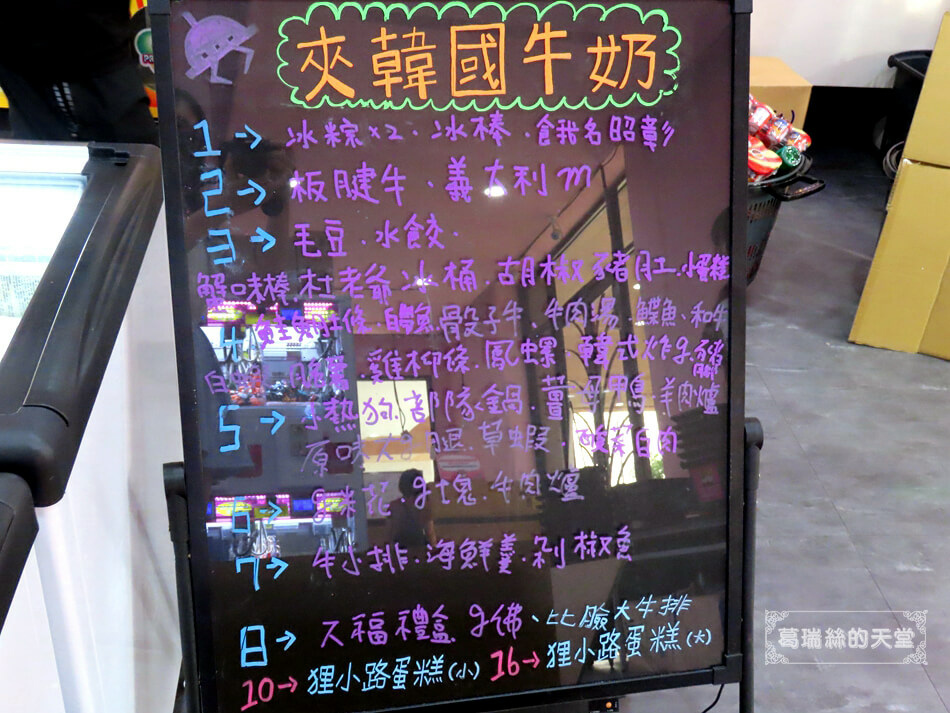 夾韓國牛奶
1→ 冰粽x2、冰棒、餓名昭彰
2→ 板腱牛、義大利m
3→ 毛豆、水餃、
蟹味棒、村老爺冰桶、胡椒豬肚、小蛋糕
4 骰子牛、牛肉湯、鰈魚、和牛
雞柳條、鳳螺、韓式炸g、豬腳
5→ 熱狗、部隊鍋、薑母鴨、羊肉爐
原味大g腿、草蝦、酸菜白肉
6→ g米花、g塊、牛肉爐
7→ 牛小排、海鮮羹、剁椒魚
8→ 天福禮盒、g佛、比臉大牛排
10→ 狸小路蛋糕(小) 16→ 狸小路蛋糕(大)
葛瑞絲的天堂